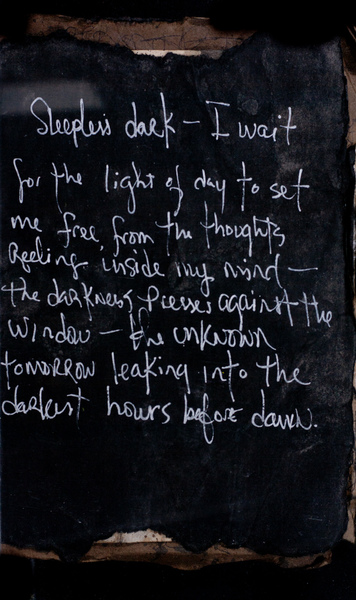 Sleepless dark – I wait
for the light of day to set
me free, from the thoughts
Reeling inside my mind –
the darkness presses against the
window – the unknown
tomorrow leaking into the
darkest hours before dawn.